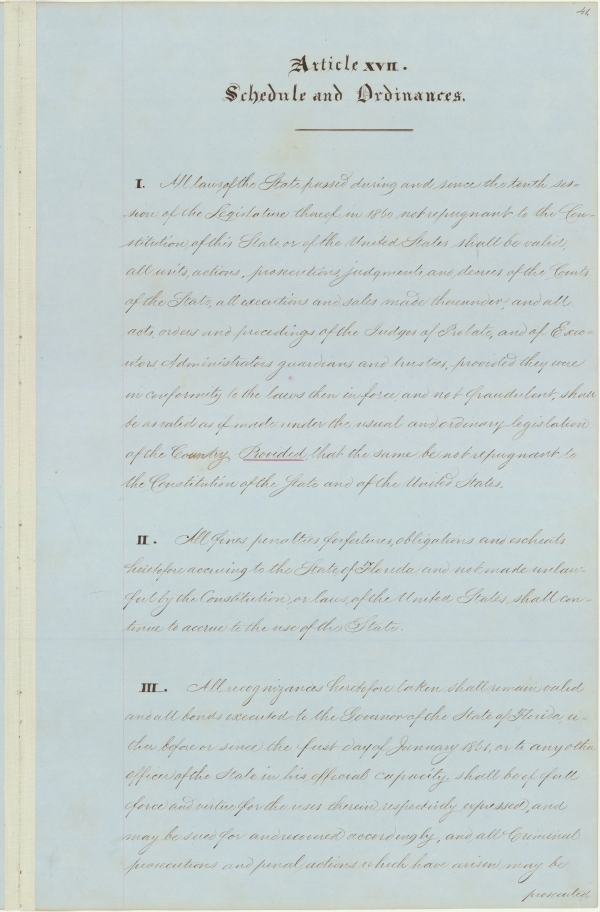 Article XVII.
Schedule and Ordinances.
I. All laws of the State passed during and since the tenth ses-
sion of the Legislature thereof in 1860 not repugnant to the Con-
stitution of this State or of the United States shall be valid,
all writs, actions, prosecutions, judgments, and decrees of the Courts
of the State, all executions and sales made thereunder, and all
acts, orders and procedings of the Judges of Probate, and of Exec-
utors Administrators guardians and trustees, provided they were
in conformity to the laws then in force, and not fraudulent, shall
be as valid as if made under the usual and ordinary legislation
of the Country Provided that the same be not repugnant to
the Constitution of the State and of the United States.
II. All fines penalties forfeitures, obligations and escheats
heretofore accruing to the State of Florida and not made unlaw-
ful by the Constitution, or laws, of the United States, shall con-
tinue to accrue to the use of the State.
III. All recognizances heretofore taken shall remain valid
and all bonds executed to the Governor of the State of Florida, ei-
ther before or since the first day of January 1861, or to any other
officer of the State in his official capacity shall be of full
force and virtue for the uses therein respectively expressed, and
may be sued for and recovered accordingly, and all Criminal
prosecutions and penal actions which have arisen may be
prosecuted